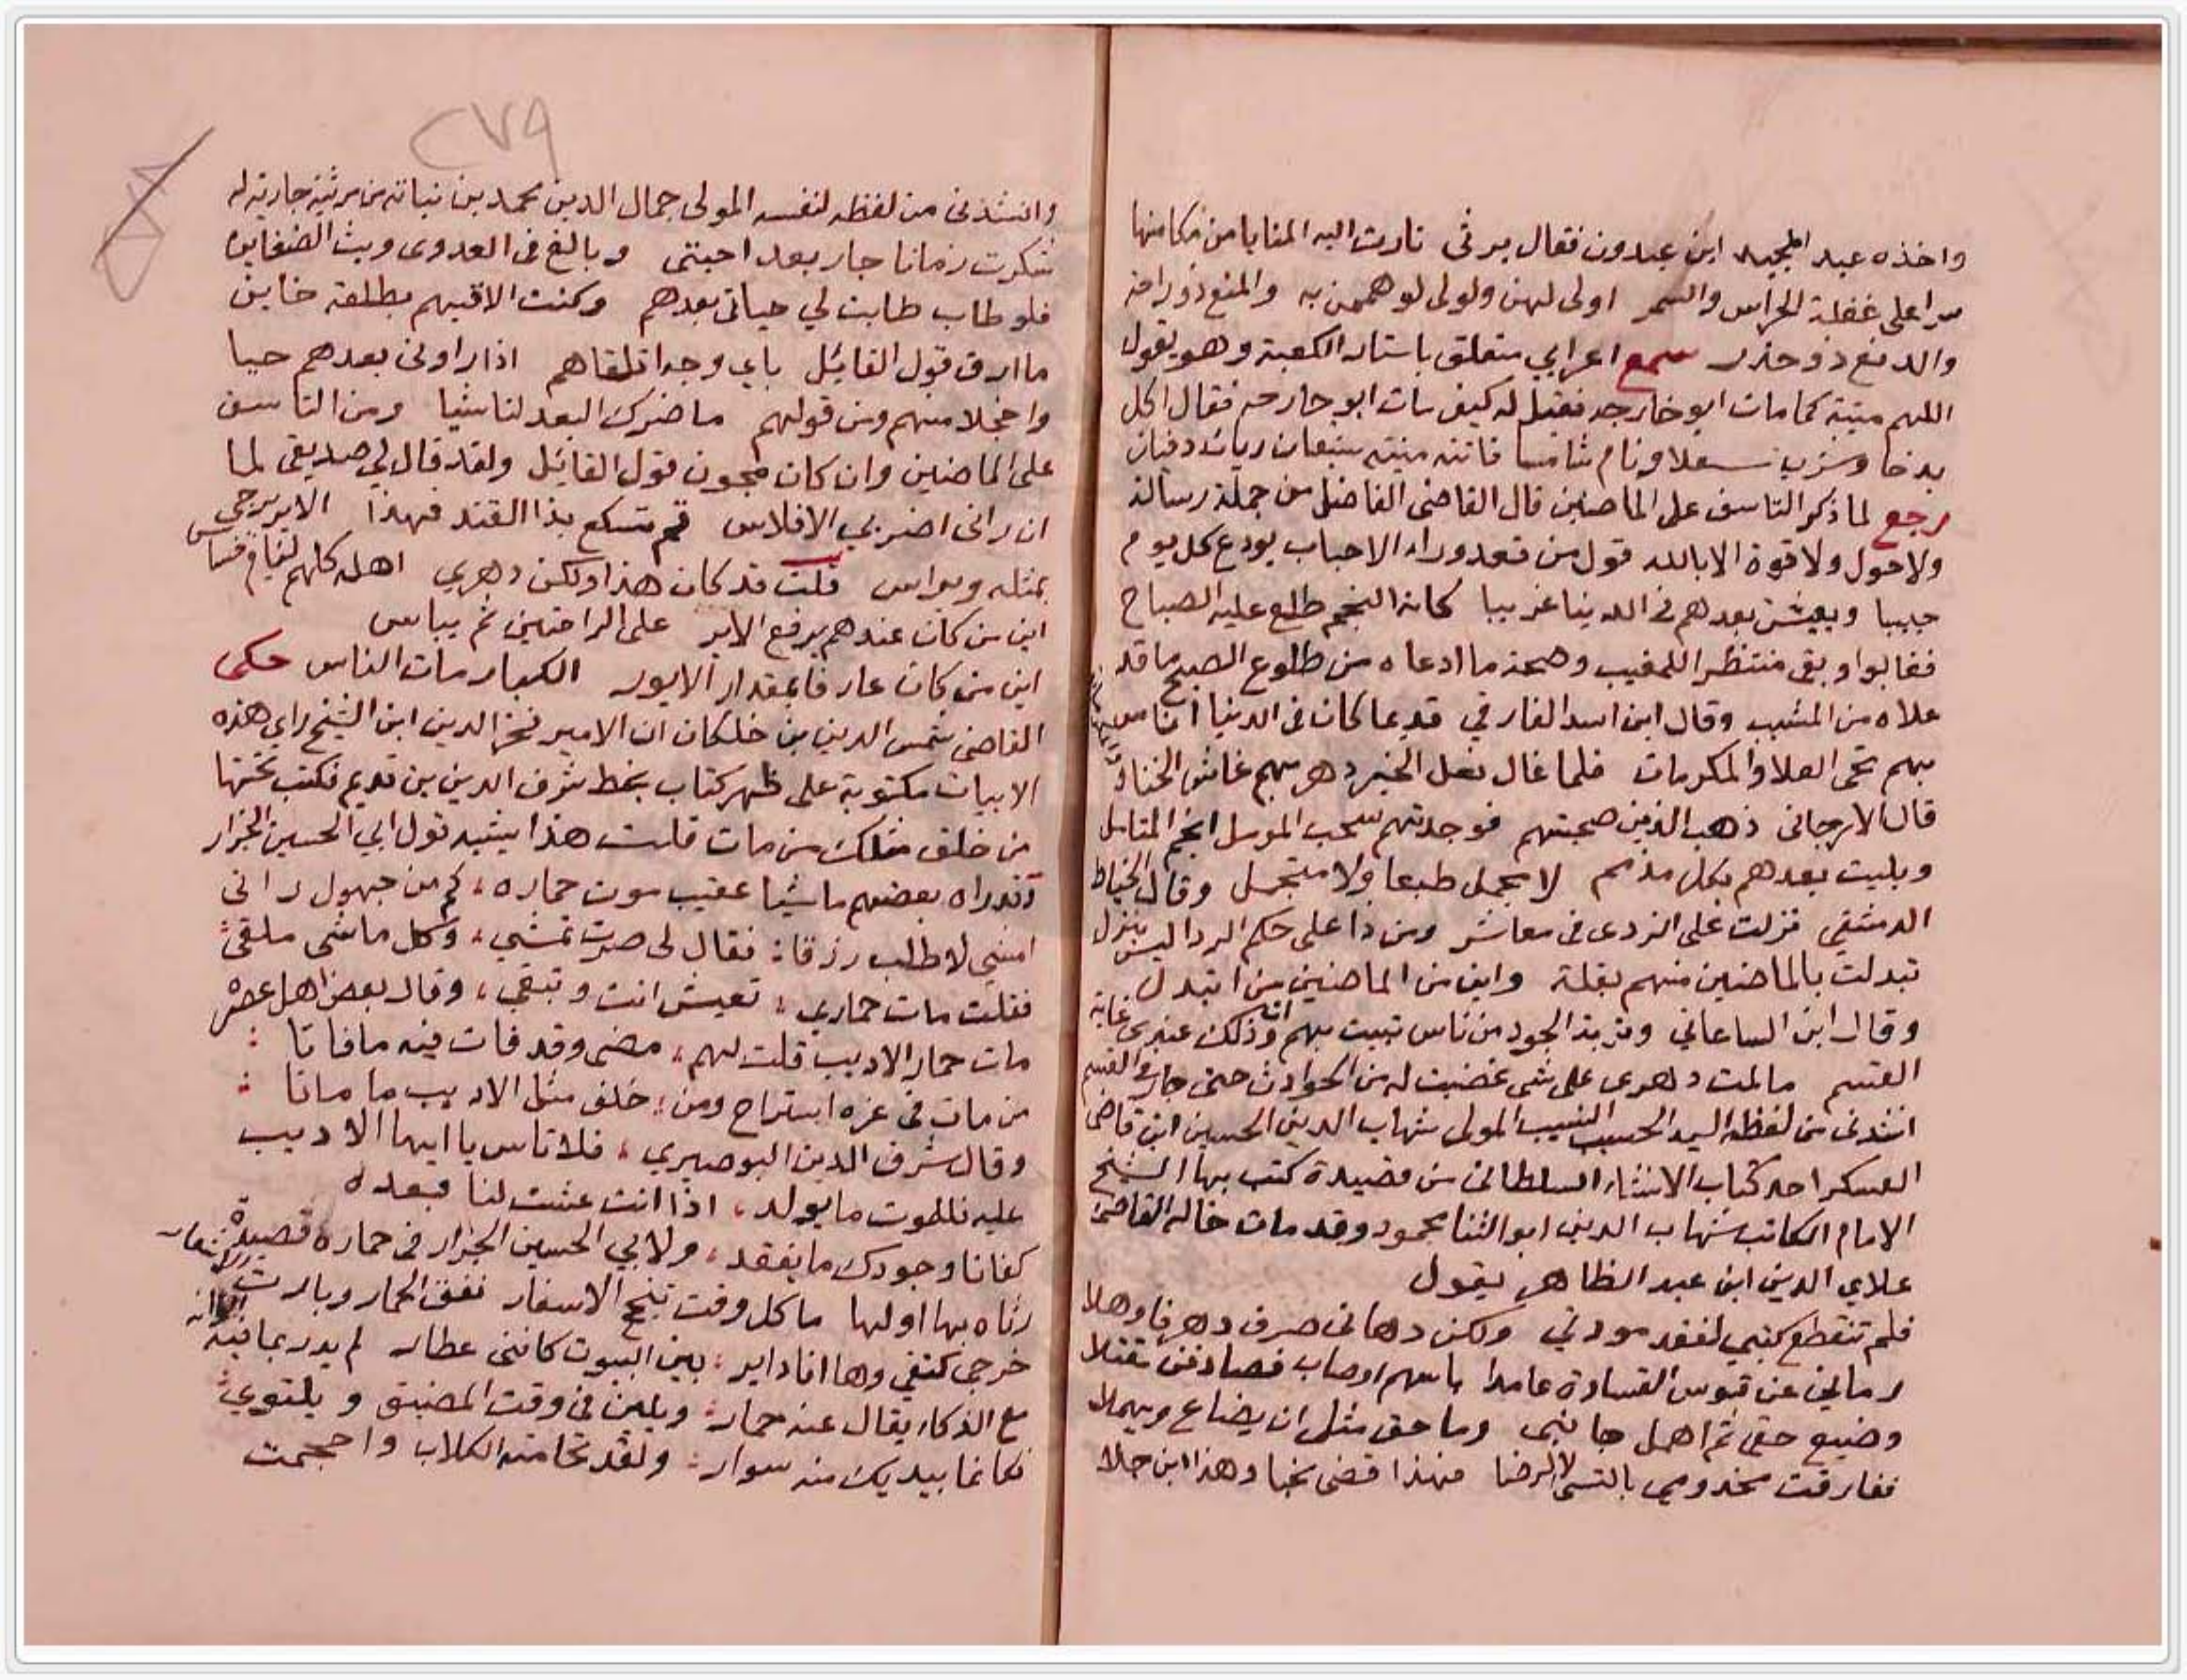 واخذه عبد المجيد ابن عبدون فقال يرثى تارت اليه المنايا من مكامنها
سرا على غفلة الحراس والسمر اولى لهن ولولى لو هممن به والمنع ذو رامة
والدفع ذو حذر سمع اعرابي متعلق باستار الكعبة وهو يقول
اللهم ميتة كما مات ابو خارجه فقيل له كيف مات ابو خارجه فقال اكل
بدخا وشرب سعلا ونام شامسا فاتته منيته شبعان ريان دفيان
رجع لما ذكر التاسف على الماضين قال القاضى الفاضل من جملة رسالة
ولا حول ولا قوة الا بالله قول من قعد وراء الاحباب يودع كل يوم
حبيبا ويعيش بعدهم في الدنيا غريبا كانه النجم طلع عليه الصباح
فغابوا وبقى منتظرا للمغيب وصحة ما ادعاه من طلوع الصبح ما قد
علاه من المشيب وقال ابن اسد الفارقي قديما كان فى الدنيا اناس
بهم تحى العلا والمكرمات فلما غال فعل الخير دهر بهم غاض الخنا
قال الارجانى ذهب الذين صحبتهم فوجدتهم سحب الموسل انجم المتامل
وبليت بعدهم بكل مذمم لا مجمل طبعا ولا متجمل وقال الخياط
الدمشقي نزلت على الزدى فى معاشر ومن ذا على حكم الردا ليس ينزل
تبدلت بالماضين منهم بقلة واين من الماضين من اتبدل
وقال ابن الساعاتي وتربة الجود من ناس تبيت بهم وذلك عندى غاية
القسم ما لمت دهرى على شى غضبت له من الحوادث حتى جار في القسم
انشدنى من لفظه السيد الحسيب النسيب المولى شهاب الدين الحسين ابن قاضى
العسكر احد كتاب الانشاء السلطانى من قصيدة كتب بها الشيخ
الامام الكاتب شهاب الدين ابو الثنا محمود وقد مات خاله القاضى
علاي الدين ابن عبد الظاهر يقول
فلم تنقطع كتبي لفقد مودتي ولكن دهانى صرف دهر فاوهلا
رمانى عن قوس القساوة عامدا باسهم اوصاب فصادفن مقتلا
وضيع حقى ثم اهمل جانبى وما حق مثلى ان يضاع ويهملا
ففارقت مخدومي بالتسى لا الرضا فهذا قضى نحبا وهذا ابن جلا
٢٧٩
وانشدنى من لفظه لنفسه المولى جمال الدين محمد بن نباته من مرثية جارية له
شكرت زمانا جار بعد احبتى وبالغ فى العدوى وبث الضغاين
فلو طاب طابت لي حياتى بعدهم وكنت الاقيهم بطلعة خاين
ما ارق قول القائل باي وجه اتلقاهم اذا راونى بعدهم حيا
واخجلا منهم ومن قولهم ما ضرك البعد لنا شيا ومن التاسف
على الماضين وان كان مجون قول القائل ولقد قال لي صديقى لما
ان رانى اضر بي الافلاس قم تسكع بذا القند فهذا الاير يرجى
بمثله ويواس قلت قد كان هذا ولكن دهري اهله كلهم لئام خساس
اين من كان عندهم يرفع الاير على الراحتين ثم يباس
اين من كان عارفا بمقدار الايور الكبار مات الناس حكى
القاضى شمس الدين بن خلكان ان الامير فخر الدين ابن الشيخ راي هذه
الابيات مكتوبة على ظهر كتاب بخط شرف الدين بن قديم فكتب تحتها
من خلف مثلك من مات قلت هذا يشبه قول ابي الحسين الجزار
وقد راه بعضهم ماشيا عقيب موت حماره ، كم من جهول رانى
امشي لاطلب رزقا : فقال لى صرت تمشي ، وكل ماشى ملقى :
فقلت مات حماري ، تعيش انت وتبقى ، وقال بعض اهل عصره
مات حمار الاديب قلت لهم ، مضى وقد فات فيه مافاتا :
من مات فى عزه استراح ومن : خلف مثل الاديب ما ماتا :
وقال شرف الدين البوصيري ، فلا تاس يا ايها الاديب
عليه فللموت ما يولد ، اذا انت عشت لنا فبعده
كفانا وجودك ما يفقد ، ولابي الحسين الجزار فى حماره قصيدة
رثاه بها اولها ما كل وقت تنجح الاسفار نفق الحمار وبارت الاشعار
خرجى كتفي وها انا داير : بين البيوت كاننى عطار لم يدر بما فيه
مع الذكاء يقال عنه حمار : ويلين فى وقت المضيق ويلتوي :
فكانما بيديك منه سوار : ولقد تحامته الكلاب واحجمت